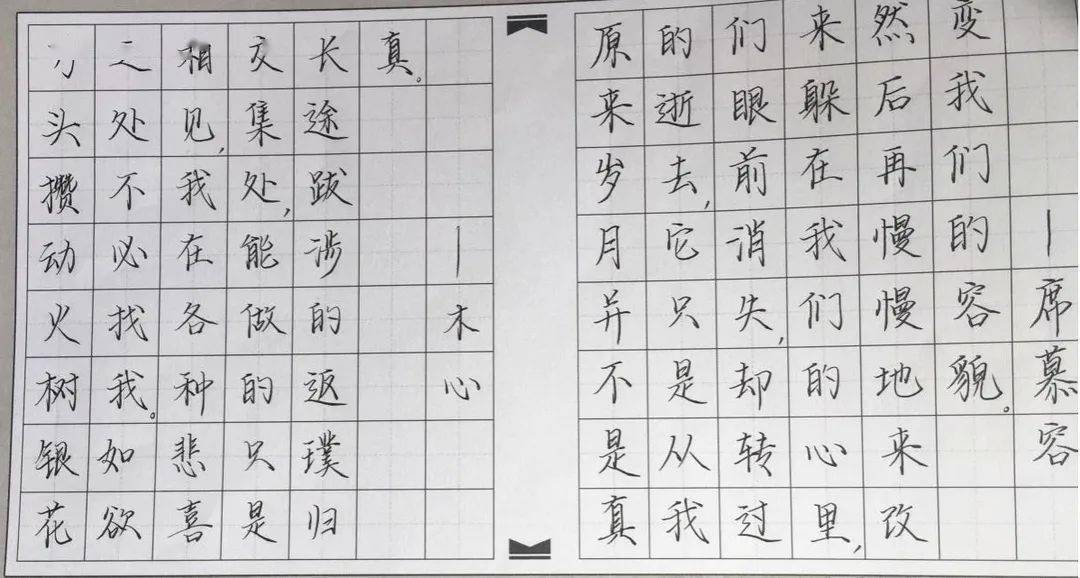 头攒动火树银花
之处不必找我。如欲
相见,我在各种悲喜
交集处,能做的只是
长途跋涉的返璞归
真。
—木心
原来岁月并不是真
的逝去,它只是从我
们眼前消失,却转过
来躲在我们的心里,
然后再慢慢地来改
变我们的容貌。
—席慕容